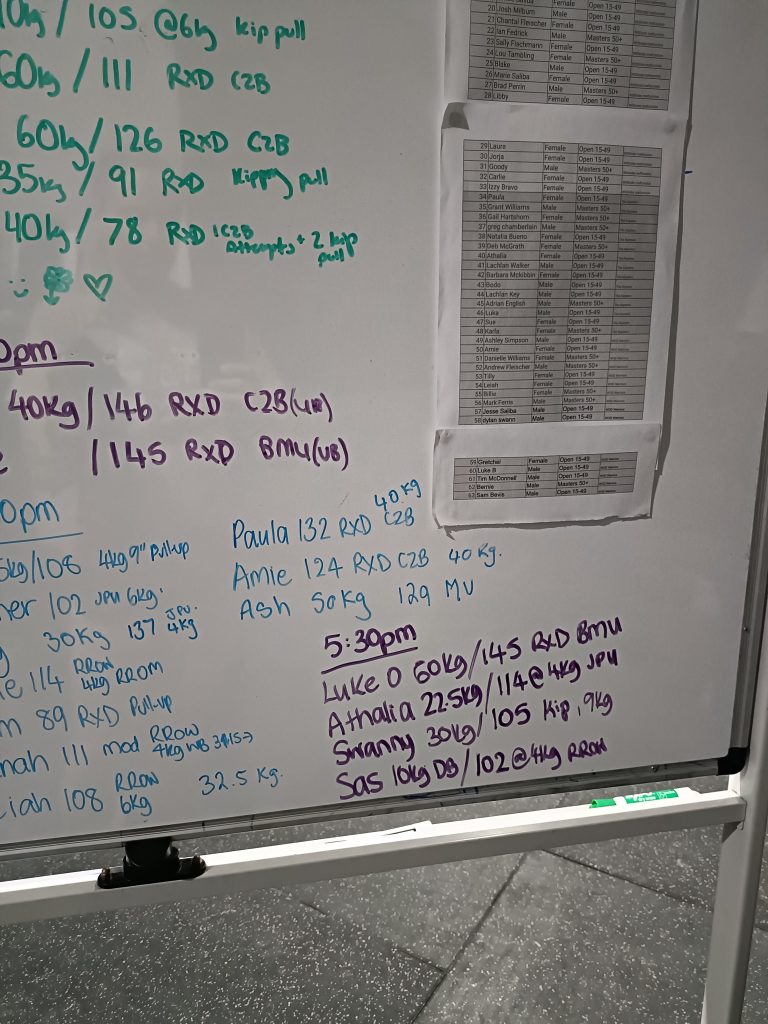 20 Josh Milburn Male Open 15-49
21 Chantal Fleischer Female Open 15-49
22 Ian Fedrick Male Masters 50+
23 Sally Flachmann Female Open 15-49
24 Lou Tambling Female Masters 50+
25 Blake Male Open 15-49
26 Marie Saliba Female Open 15-49
27 Brad Perrin Male Masters 50+
28 Libby Female Open 15-49
29 Laura Female Open 15-49
30 Jorja Female Open 15-49
31 Goody Male Masters 50+
32 Carlie Female Open 15-49
33 Izzy Bravo Female Open 15-49
34 Paula Female Open 15-49
35 Grant Williams Male Masters 50+
36 Gail Hartshorn Female Masters 50+
37 greg chamberlain Male Masters 50+
38 Natalia Bueno Female Open 15-49
39 Deb McGrath Female Masters 50+
40 Athalia Female Open 15-49
41 Lachlan Walker Male Open 15-49
42 Barbara Mckibbin Female Masters 50+
43 Bodo Male Open 15-49
44 Lachlan Key Male Open 15-49
45 Adrian English Male Masters 50+
46 Luka Male Open 15-49
47 Sue Female Masters 50+
48 Karla Female Masters 50+
49 Ashley Simpson Male Open 15-49
50 Amie Female Open 15-49
51 Danielle Williams Female Masters 50+
52 Andrew Fleischer Male Masters 50+
53 Tilly Female Open 15-49
54 Leiah Female Open 15-49
55 Billie Female Masters 50+
56 Mark Ferris Male Masters 50+
57 Jesse Saliba Male Open 15-49
58 dylan swann Male Open 15-49
59 Gretchel Female Open 15-49
60 Luke B Male Open 15-49
61 Tim McDonnell Male Open 15-49
62 Bernie Male Masters 50+
63 Sam Bevis Male Open 15-49
10kg / 105 @6kg kip pull
60kg / 111 RXD C2B
60kg / 126 RXD C2B
35kg / 91 RXD kipping pull
40kg / 78 RXD 1C2B Attempts + 2 kip pull
0pm
40kg / 146 RXD C2B
/ 145 RXD BMU
0pm
5kg/108 4kg 9" Pull-up
her 102 JPU 6kg.
30kg 137 JPU. 4kg
e 114 RROW 4kg RROM
m 89 RXD Pull-up
nah 111 mod RROW 4kg WB
iah 108 RROW 6kg 32.5 kg.
Paula 132 RXD C2B 40kg
Amie 124 RXD C2B 40 kg.
Ash 50kg 129 MU
5:30pm
Luke O 60kg/145 RXD BMU
Athalia 22.5kg/114@4kg JPU
Swanny 30kg/105 Kip, 9kg
Sas 10kg DB/102@4kg RROW